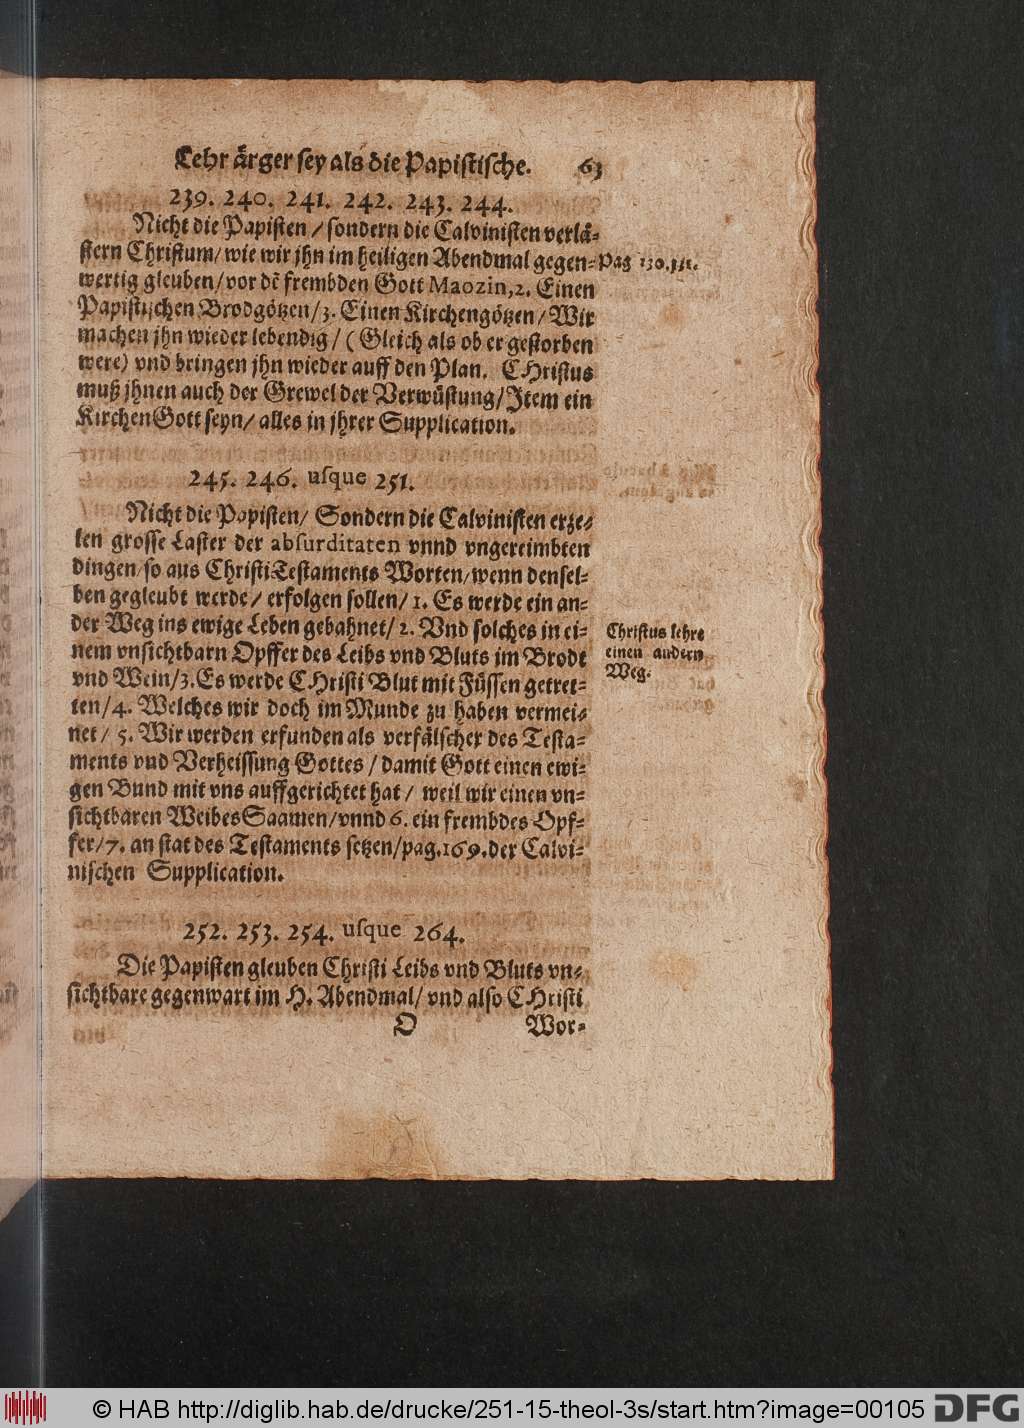 Lehr ärger sey als die Papistische. 63
239. 240. 241. 242. 243. 244.
Nicht die Papisten / sondern die Calvinisten verlä-
stern Christum / wie wir jhn im heiligen Abendmal gegen-
Pag 130.131.
wertig gleuben / vor dē frembden Gott Maozin, 2. Einen
Papistischen Brodgötzen / 3. Einen Kirchengötzen / Wir
machen jhn wieder lebendig / ( Gleich als ob er gestorben
were) vnd bringen jhn wieder auff den Plan. CHristus
muß jhnen auch der Grewel der Verwüstung / Item ein
KirchenGott seyn / alles in jhrer Supplication.
245. 246. usque 251.
Nicht die Papisten / Sondern die Calvinisten erze-
len grosse Laster der absurditaten vnnd vngereimbten
dingen / so aus Christi Testaments Worten / wenn densel-
ben gegleubt werde / erfolgen sollen / 1. Es werde ein an-
der Weg ins ewige Leben gebahnet / 2. Vnd solches in ei-
Christus lehre
einen andern
Weg.
nem vnsichtbarn Opffer des Leibs vnd Bluts im Brode
vnd Wein / 3. Es werde CHristi Blut mit Füssen getret-
ten / 4. Welches wir doch im Munde zu haben vermei-
net / 5. Wir werden erfunden als verfälscher des Testa-
ments vnd Verheissung Gottes / damit Gott einen ewi-
gen Bund mit vns auffgerichtet hat / weil wir einen vn-
sichtbaren WeibesSaamen / vnnd 6. ein frembdes Opf-
fer / 7. an stat des Testaments setzen / pag. 169. der Calvi-
nischen Supplication.
252. 253. 254. usque 264.
Die Papisten gleuben Christi Leibs vnd Bluts vn-
sichtbare gegenwart im H. Abendmal / vnd also CHristi
O Wor-
© HAB http://diglib.hab.de/drucke/251-15-theol-3s/start.htm?image=00105 DFG